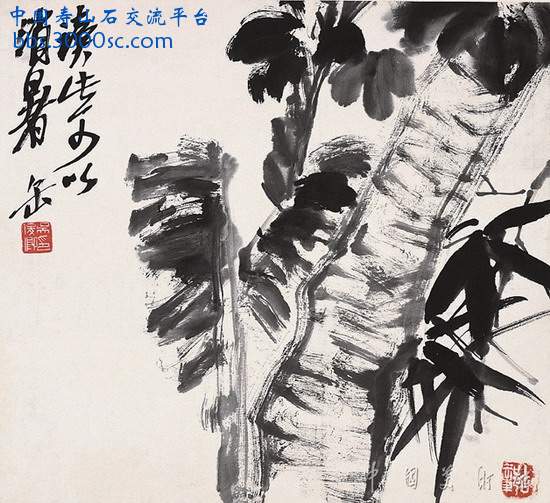 中国寿山石交流平台
bbs.3000sc.com
此可以
消暑 缶
中國美術